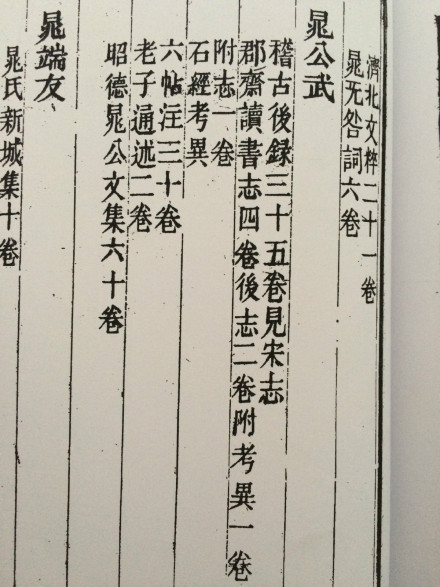 濟北文粹二十一卷
晁无咎詞六卷
晁公武
稽古後録三十五卷見宋志
郡齋讀書志四卷後志二卷附考異一卷
附志一卷
石經考異
六帖注三十卷
老子通述二卷
昭德晁公文集六十卷
晁端友
晁氏新城集十卷